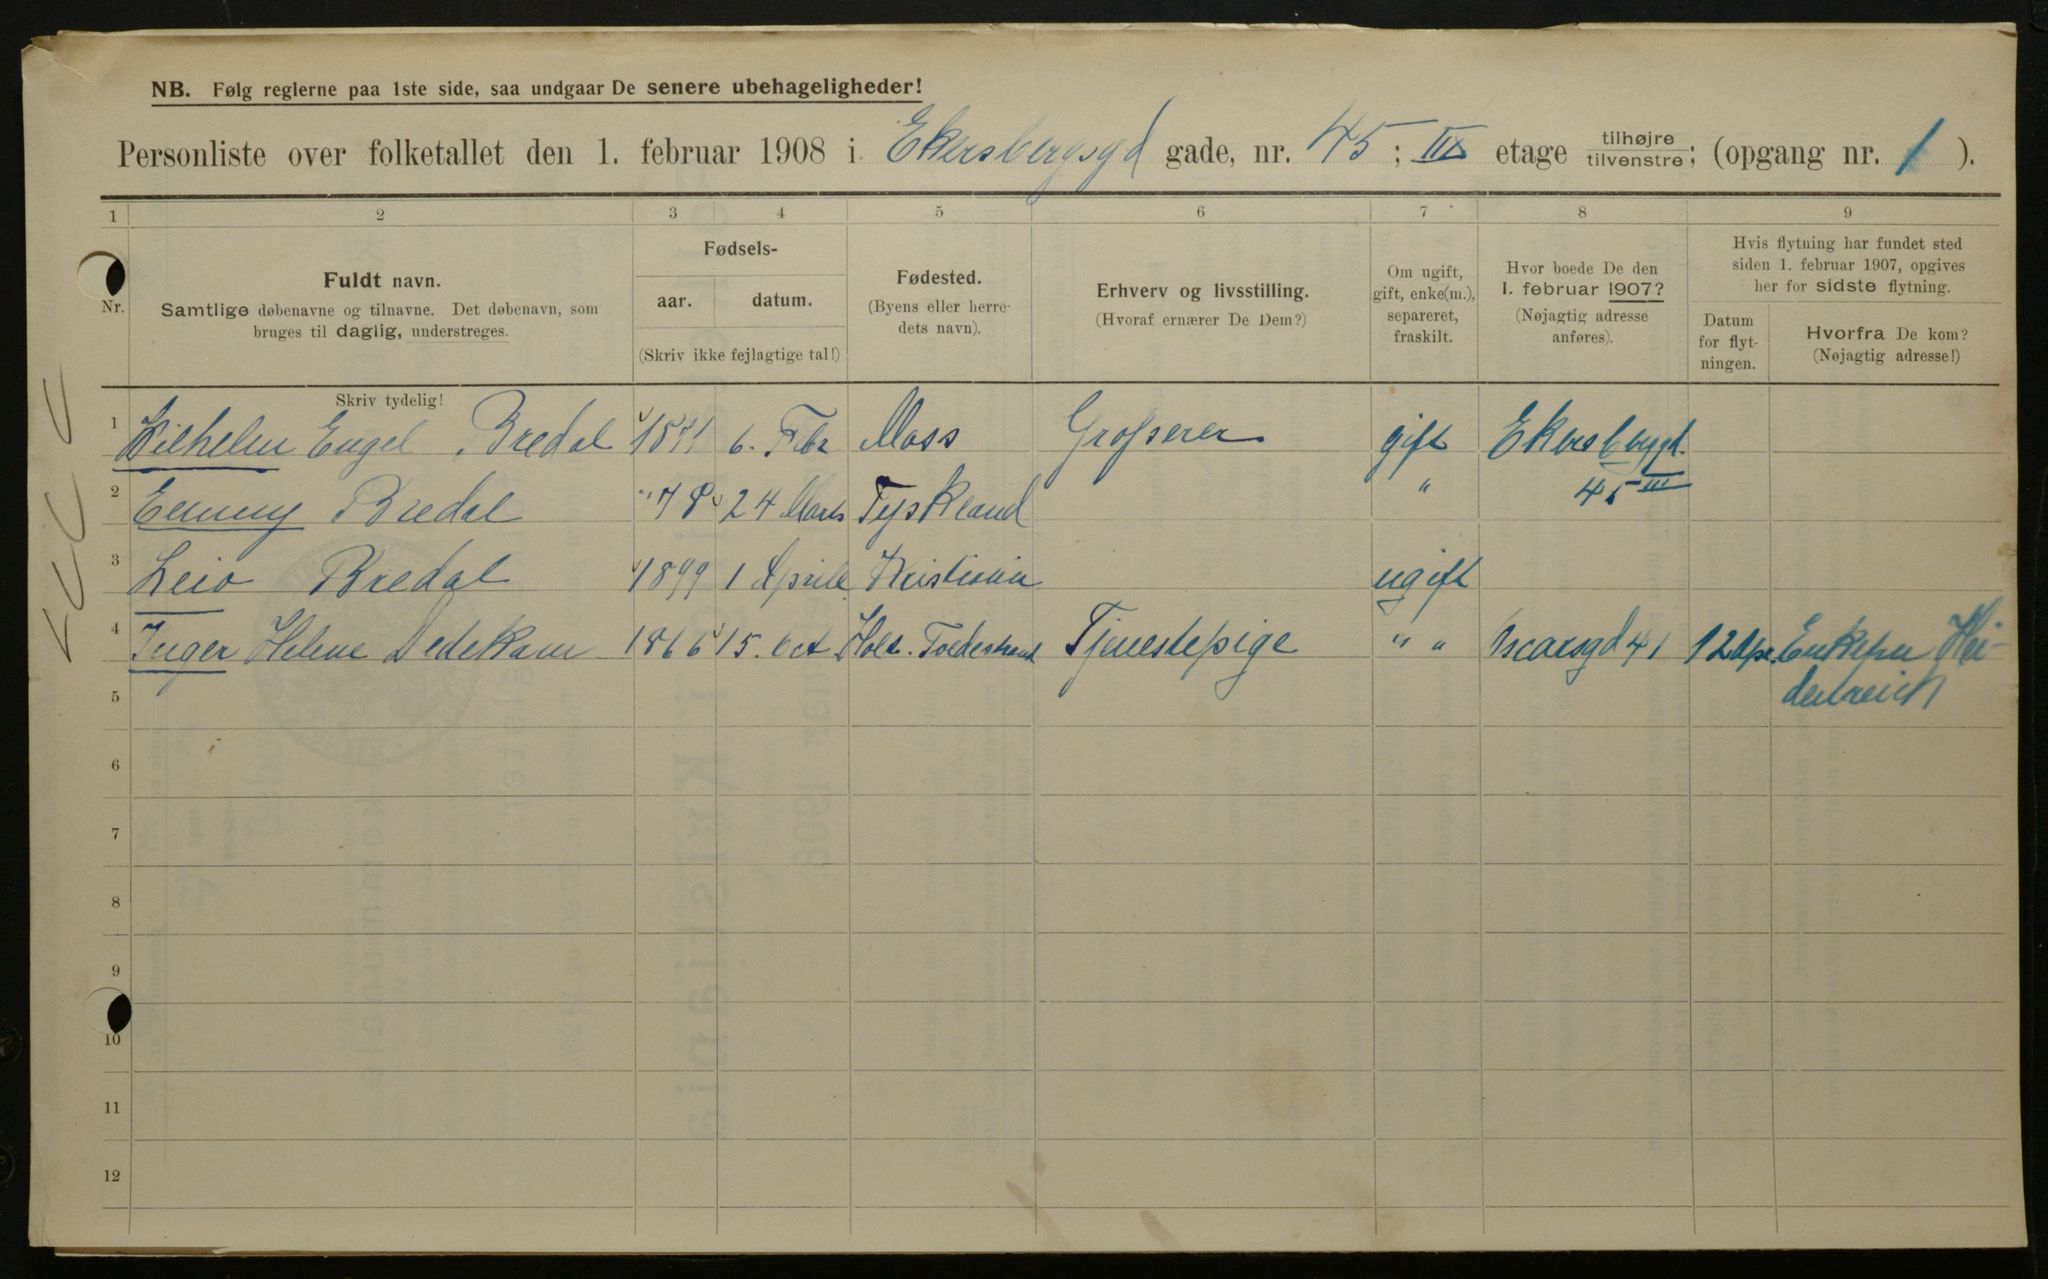 NB. Følg reglerne paa 1ste side, saa undgaar De senere ubehageligheder!
Personliste over folketallet den 1. februar 1908 i Ekersbergsgd gade, nr. 45; III etage tilhøjre/tilvenstre; (opgang nr. 1).
1 2 3 4 5 6 7 8 9
Nr.
Fuldt navn.
Samtlige døbenavne og tilnavne. Det døbenavn, som
bruges til daglig, understreges.
Fødsels-
aar. datum.
(Skriv ikke fejlagtige tal!)
Fødested.
(Byens eller herre-
dets navn).
Erhverv og livsstilling.
(Hvoraf ernærer De Dem?)
Om ugift,
gift, enke(m.),
separeret,
fraskilt.
Hvor boede De den
1. februar 1907?
(Nøjagtig adresse
anføres).
Hvis flytning har fundet sted
siden 1. februar 1907, opgives
her for sidste flytning.
Datum
for flyt-
ningen.
Hvorfra De kom?
(Nøjagtig adresse!)
Skriv tydelig!
1 Wilhelm Engel Bredal 1871 6. Febr Moss Grosserer gift Ekersbergd.
2 Emmy Bredal " 78 24 Marts Tyskland " 45 III
3 Leio Bredal 1899 1 April Kristiania ugift
4 Inger Helene Dedekam 1866 15. Oct Holt. Tvedestrand Tjenestepige " " Oscarsgd 41 12 Apr. Enkefru Hei-
5 denreich
6
7
8
9
10
11
12